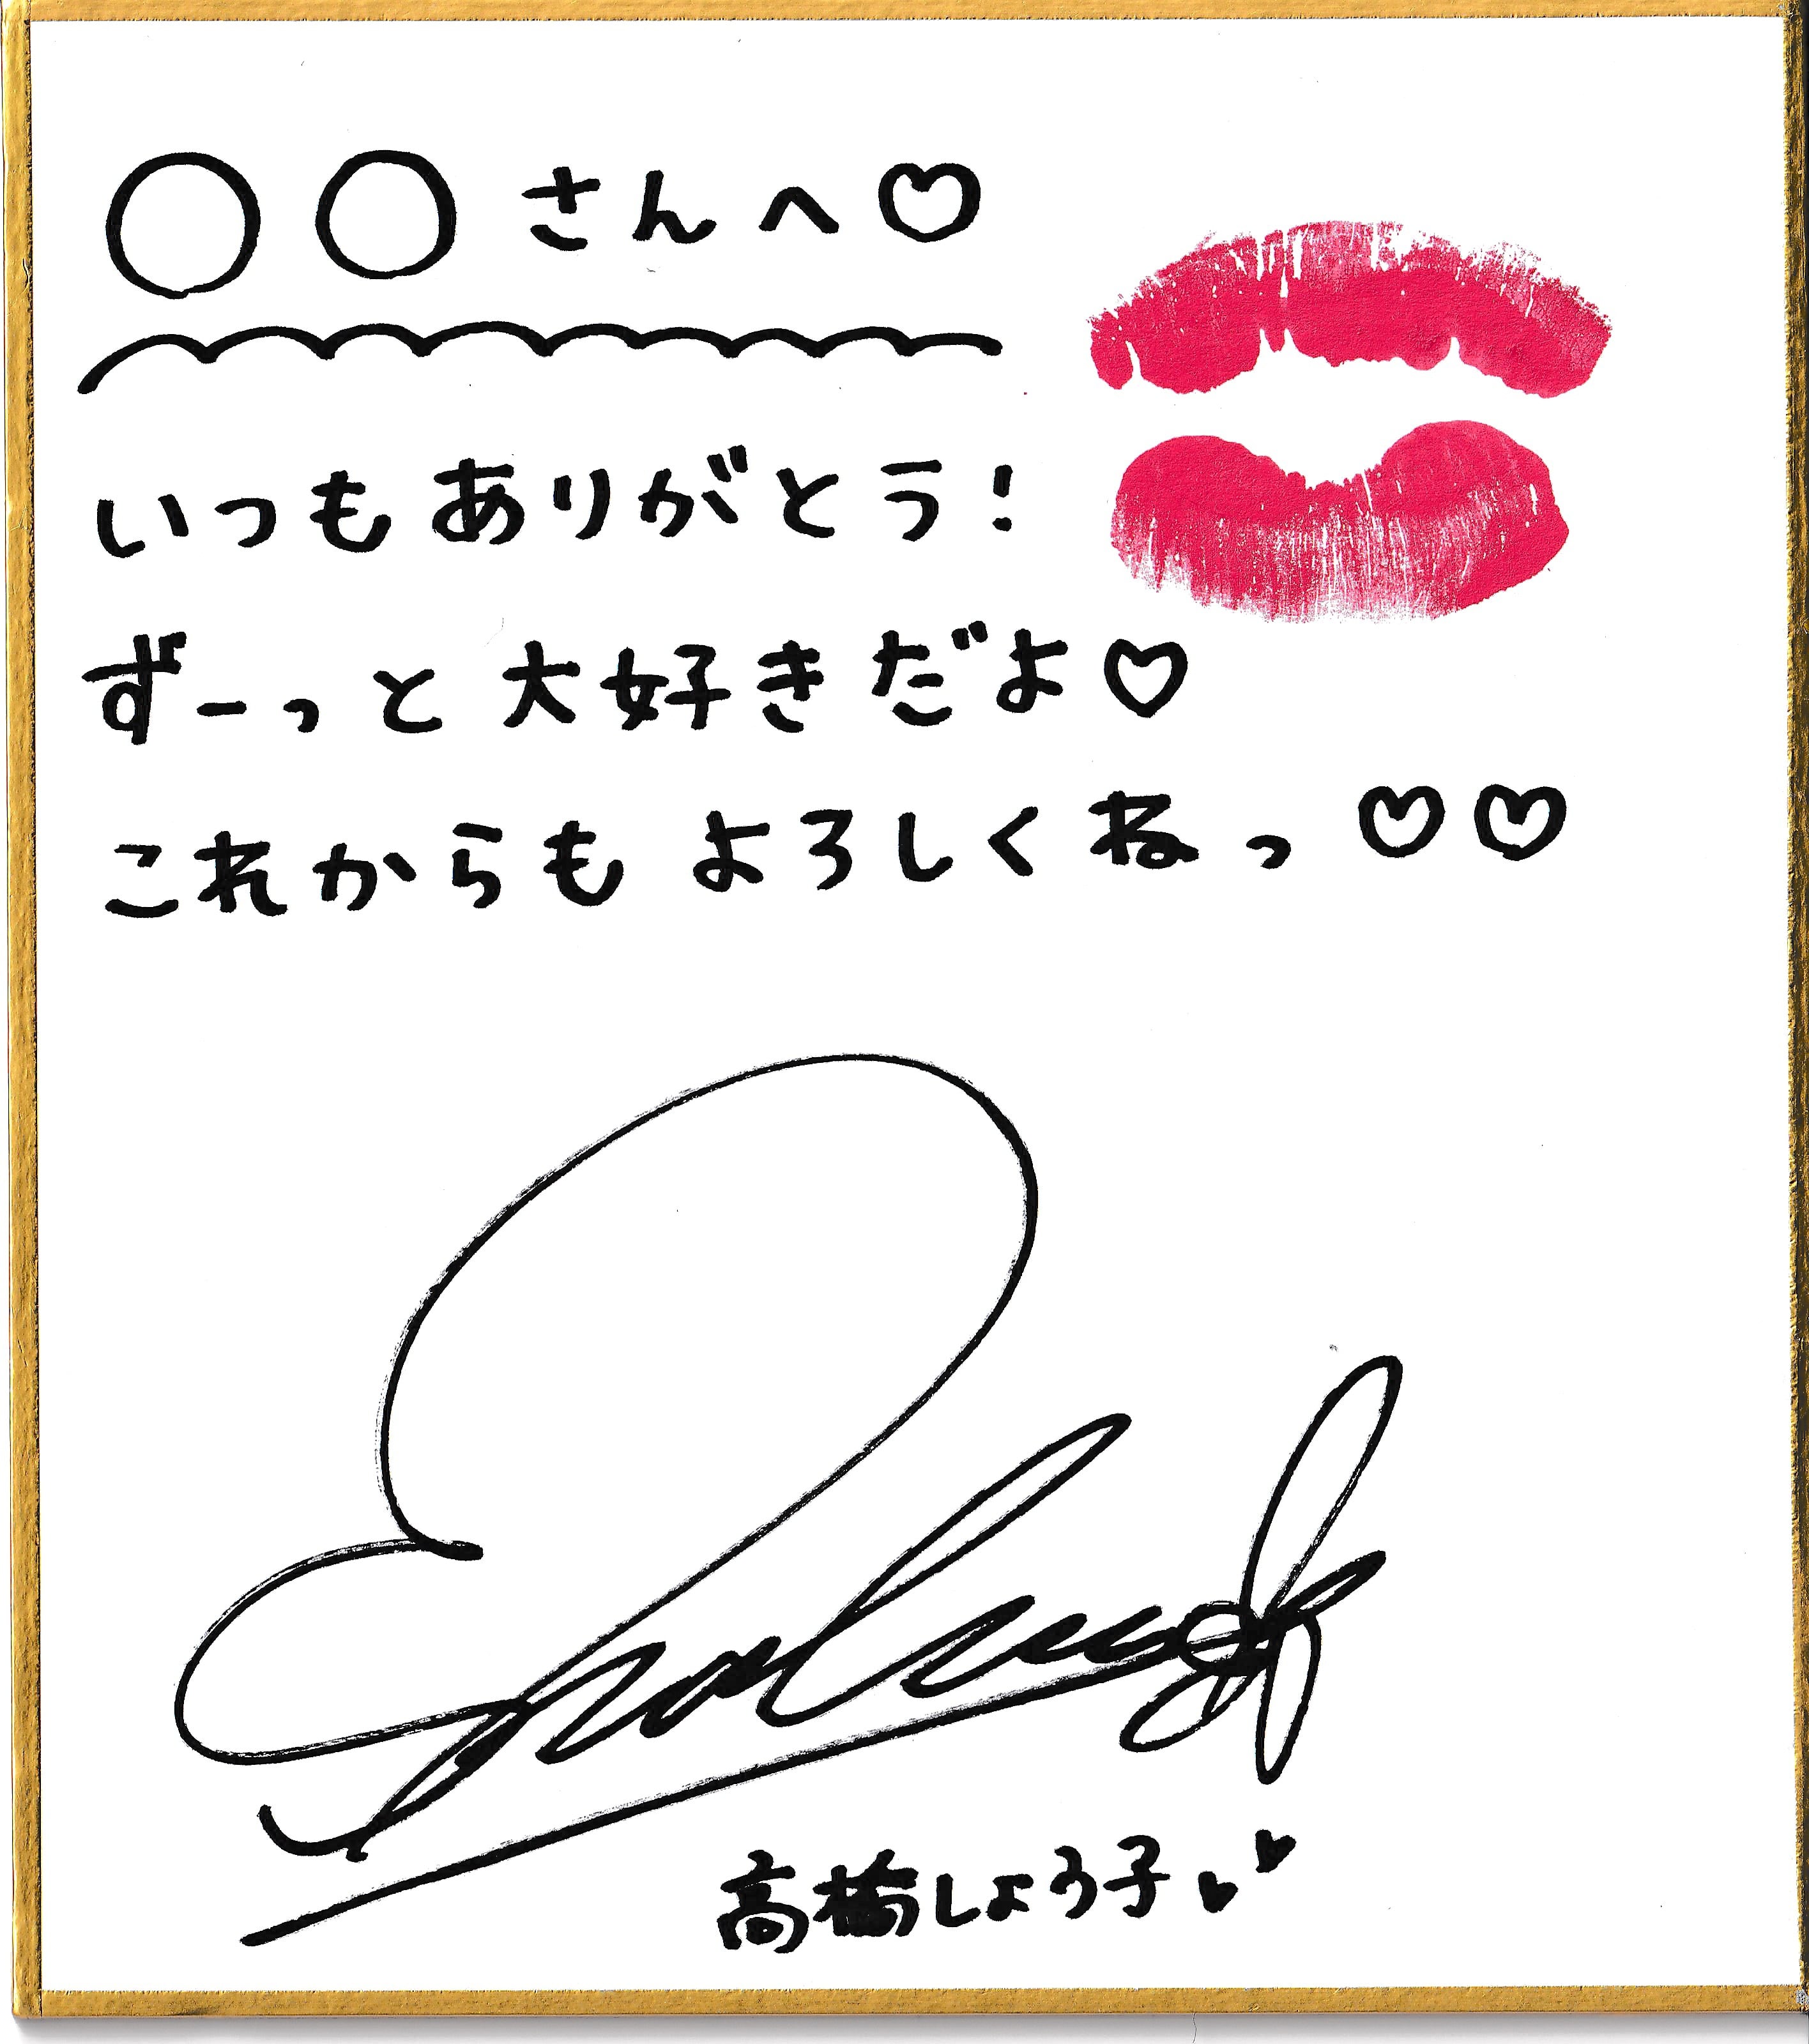 ○○さんへ♡
いつもありがとう!
ずーっと大好きだよ♡
これからもよろしくねっ♡♡
高橋しょう子